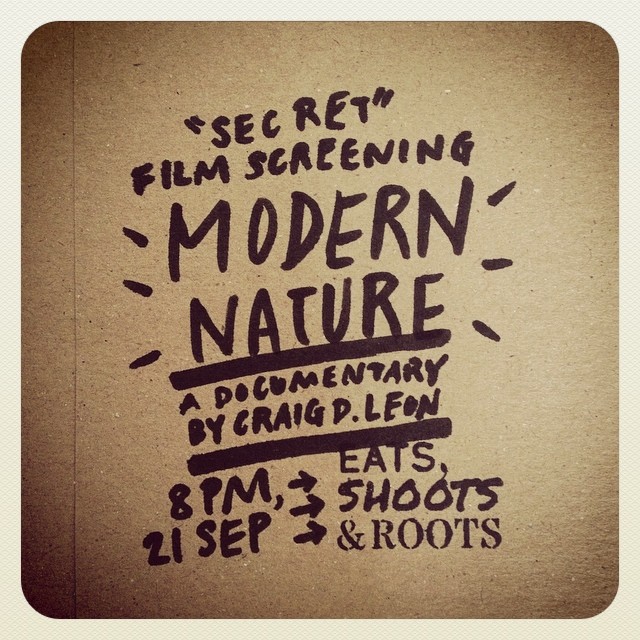 "SECRET"
FILM SCREENING
MODERN
NATURE
A DOCUMENTARY
BY CRAIG D. LEON
8PM,
21 SEP
EATS,
SHOOTS
& ROOTS